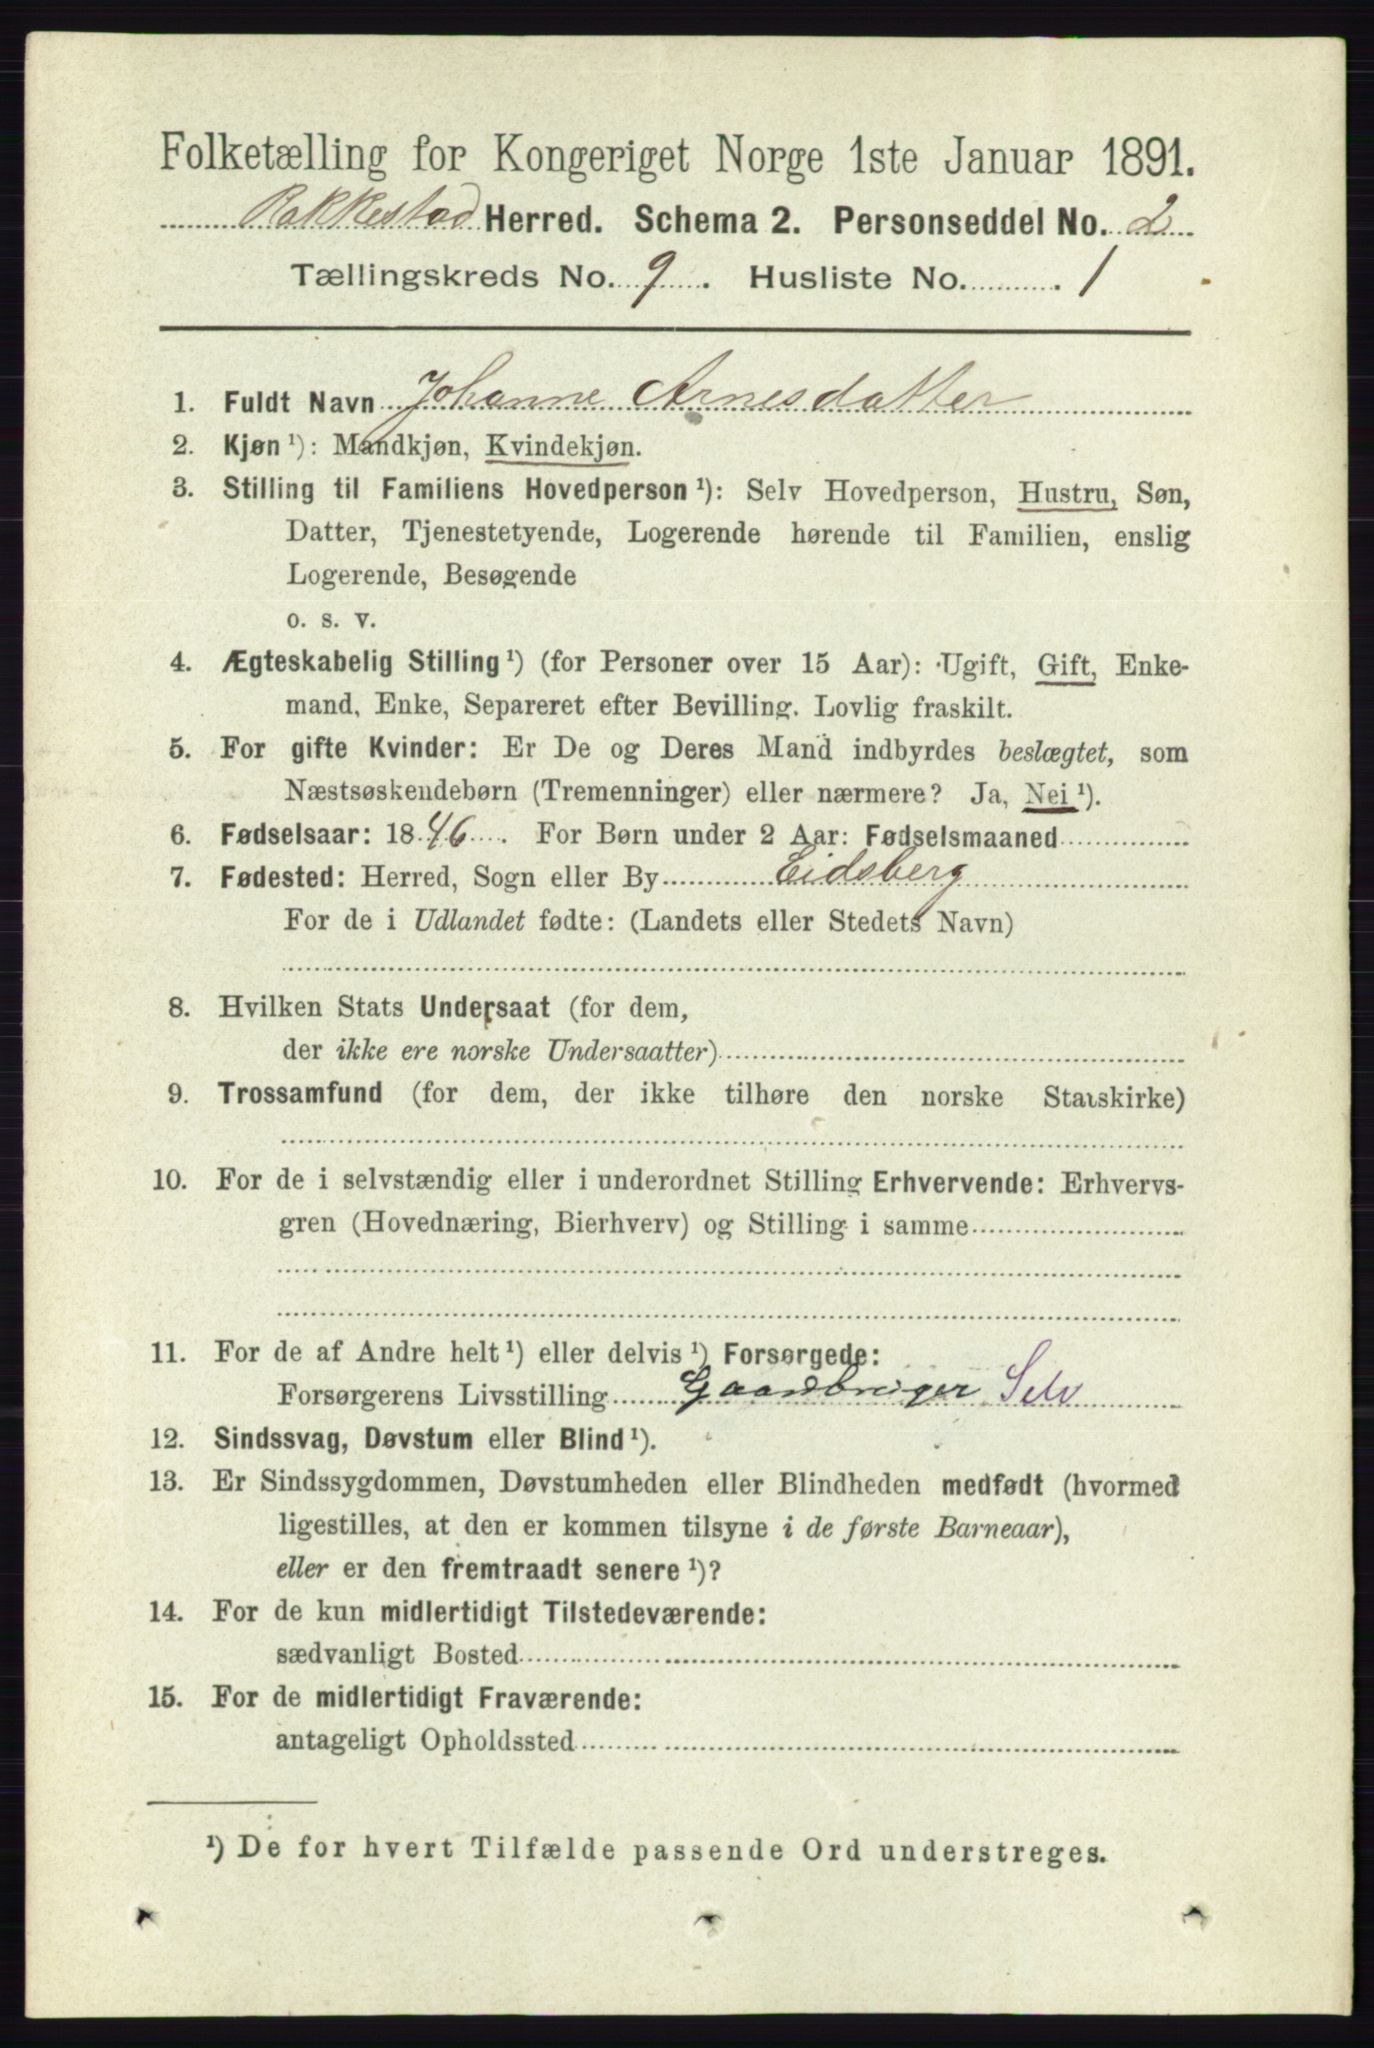 Folketælling for Kongeriget Norge 1ste Januar 1891.
Rakkestad Herred. Schema 2. Personseddel No. 2
Tællingskreds No. 9. Husliste No. 1
1. Fuldt Navn Johanne Arnesdatter
2. Kjøn ¹): Mandkjøn, Kvindekjøn.
3. Stilling til Familiens Hovedperson ¹): Selv Hovedperson, Hustru, Søn,
Datter, Tjenestetyende, Logerende hørende til Familien, enslig
Logerende, Besøgende
o. s. v.
4. Ægteskabelig Stilling ¹) (for Personer over 15 Aar): Ugift, Gift, Enke-
mand, Enke, Separeret efter Bevilling. Lovlig fraskilt.
5. For gifte Kvinder: Er De og Deres Mand indbyrdes beslægtet, som
Næstsøskendebørn (Tremenninger) eller nærmere? Ja, Nei ¹).
6. Fødselsaar: 1846. For Børn under 2 Aar: Fødselsmaaned
7. Fødested: Herred, Sogn eller By Eidsberg
For de i Udlandet fødte: (Landets eller Stedets Navn)
8. Hvilken Stats Undersaat (for dem,
der ikke ere norske Undersaatter)
9. Trossamfund (for dem, der ikke tilhøre den norske Statskirke)
10. For de i selvstændig eller i underordnet Stilling Erhvervende: Erhvervs-
gren (Hovednæring, Bierhverv) og Stilling i samme
11. For de af Andre helt ¹) eller delvis ¹) Forsørgede:
Forsørgerens Livsstilling Gaardbruger Selv
12. Sindssvag, Døvstum eller Blind ¹).
13. Er Sindssygdommen, Døvstumheden eller Blindheden medfødt (hvormed
ligestilles, at den er kommen tilsyne i de første Barneaar),
eller er den fremtraadt senere ¹)?
14. For de kun midlertidigt Tilstedeværende:
sædvanligt Bosted
15. For de midlertidigt Fraværende:
antageligt Opholdssted
¹) De for hvert Tilfælde passende Ord understreges.